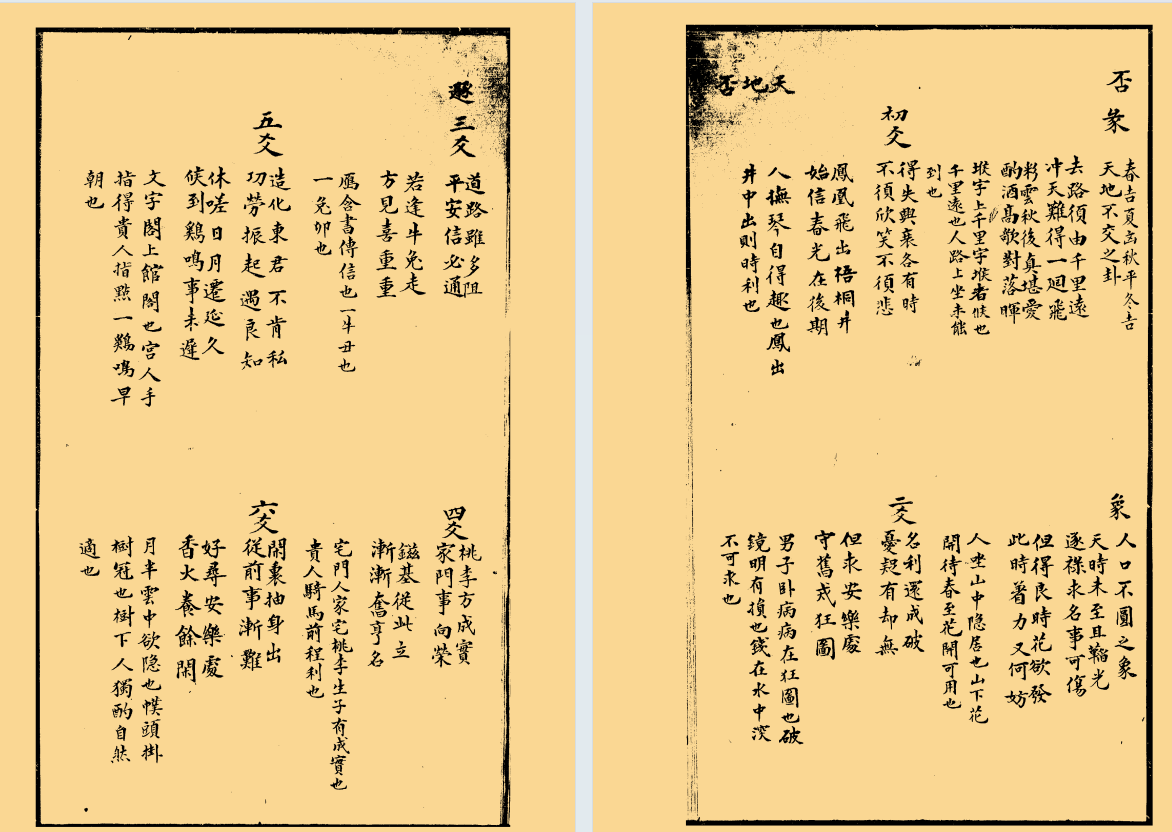 否彖
春吉夏凶秋平冬吉
天地不交之卦
去路須由千里遠
冲天難得一迴飛
彩雲秋後真堪愛
酌酒高歌對落暉
堠字上千里字堠者候也
千里遠也人路上坐未能
到也
初爻
得失興衰各有時
不須欣笑不須悲
鳳凰飛出梧桐井
始信春光在後期
人撫琴自得趣也鳳出
井中出則時利也
天地否
象
人口不圓之象
天時未至且韜光
逐祿求名事可傷
但得良時花欲發
此時著力又何妨
人坐山中隐居也山下花
開待春至花開可用也
二爻
名利還成破
憂疑有却無
但求安樂處
守舊戒狂圖
男子卧病病在狂圖也破
鏡明有損也錢在水中深
不可求也
遯三爻
道路雖多阻
平安信必通
若逢牛兔走
方見喜重重
鴈含書傳信也一牛丑也
一兔卯也
五爻
造化東君不肯私
功勞振起遇良知
休嗟日月遷延久
候到鷄鳴事未遲
文字閣上館閣也宫人手
指得貴人指點一鷄鳴早
朝也
四爻
桃李方成實
家門事向榮
鎡基從此立
漸漸奮亨名
宅門人家宅桃李生子有成實也
貴人騎馬前程利也
六爻
閙裏抽身出
從前事漸難
好尋安樂處
香火養餘閑
月半雲中欲隐也幞頭掛
樹冠也樹下人獨酌自然
適也